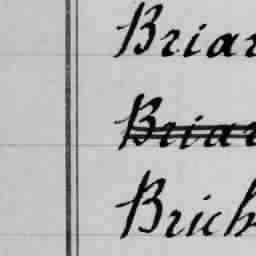 Briar
Briar
Brich